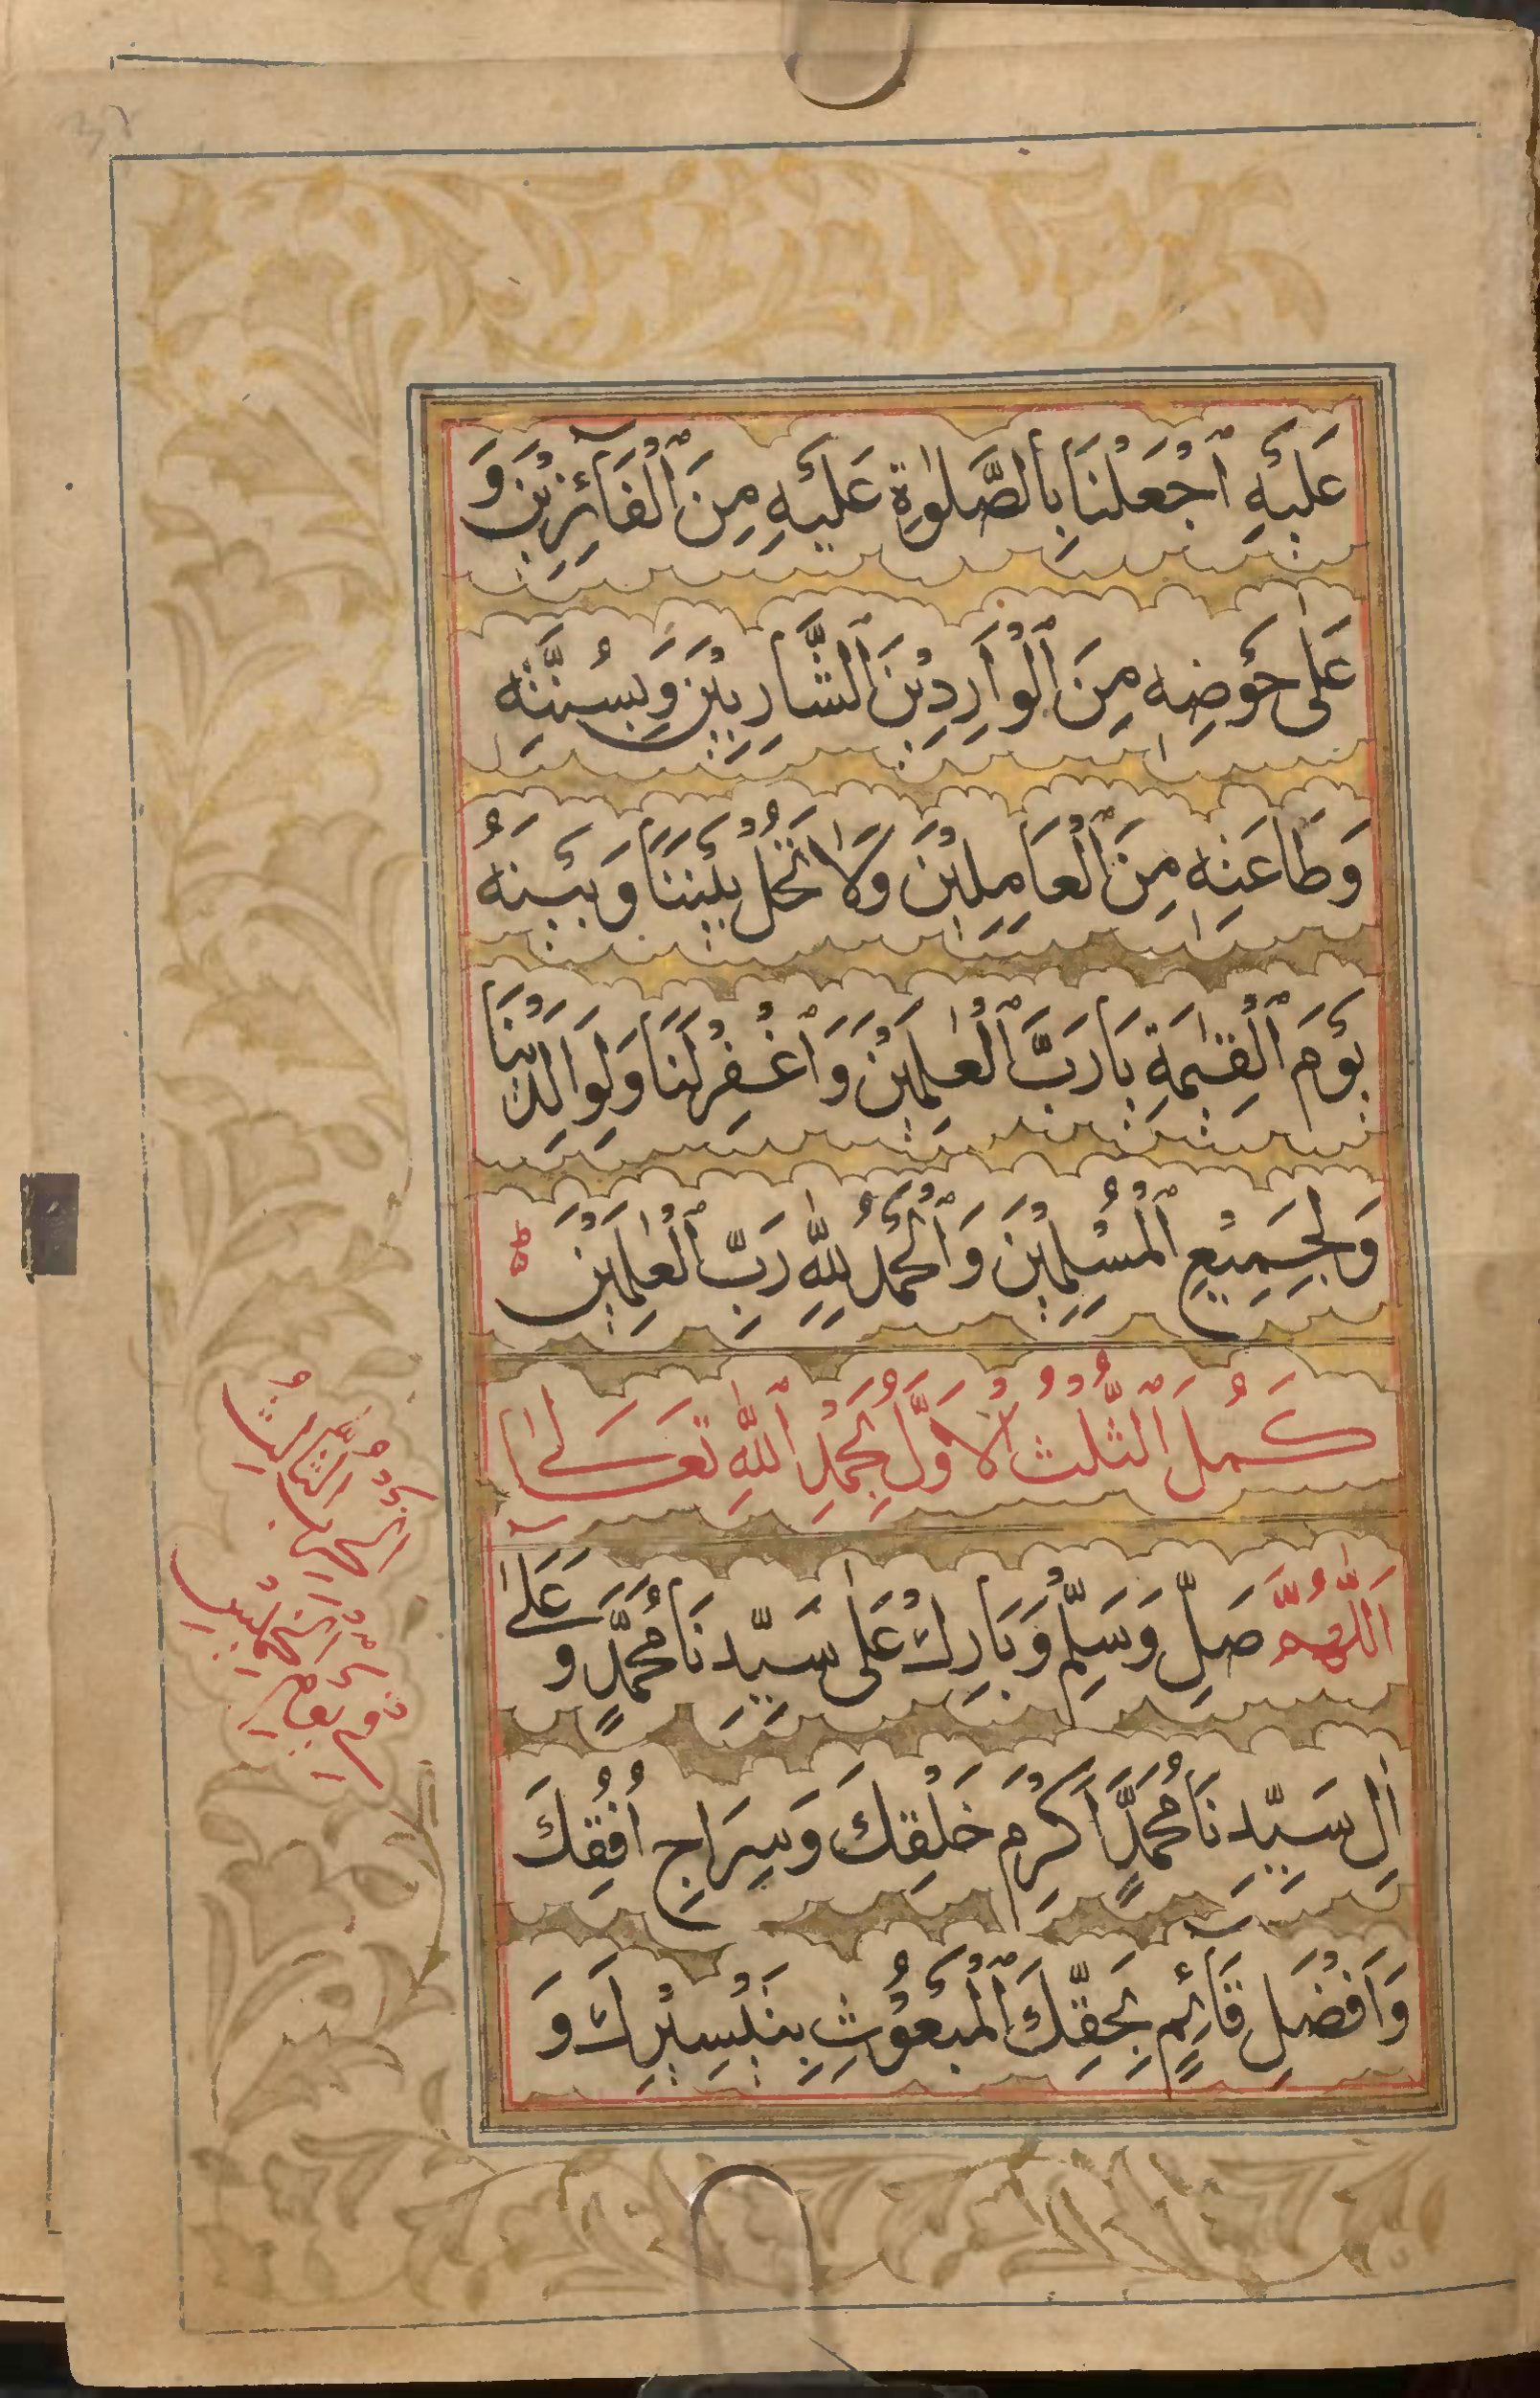 عَلَيْهِ ٱجْعَلْنَا بِالصَّلٰوةِ عَلَيْهِ مِنَ ٱلْفَآئِزِيْنَ وَ
عَلٰى حَوْضِهٖ مِنَ ٱلْوَارِدِيْنَ ٱلشَّارِبِيْنَ وَبِسُنَّتِهٖ
وَطَاعَتِهٖ مِنَ ٱلْعَامِلِيْنَ وَلَا تَحُلْ بَيْنَنَا وَبَيْنَهُ
يَوْمَ ٱلْقِيٰمَةِ يَا رَبَّ ٱلْعٰلَمِيْنَ وَٱغْفِرْ لَنَا وَلِوَالِدَيْنَا
وَلِجَمِيْعِ ٱلْمُسْلِمِيْنَ وَٱلْحَمْدُ لِلّٰهِ رَبِّ ٱلْعٰلَمِيْنَ
كَمُلَ ٱلثُّلُثُ الْاَوَّلُ بِحَمْدِ ٱللّٰهِ تَعَالٰى
اَللّٰهُمَّ صَلِّ وَسَلِّمْ وَبَارِكْ عَلٰى سَيِّدِنَا مُحَمَّدٍ وَّعَلٰٓى
اٰلِ سَيِّدِنَا مُحَمَّدٍ اَكْرَمِ خَلْقِكَ وَسِرَاجِ اُفُقِكَ
وَاَفْضَلِ قَآئِمٍ بِحَقِّكَ ٱلْمَبْعُوْثِ بِتَيْسِيْرِكَ وَ
اَلْحِزْبُ الثَّالِثُ
فِيْ يَوْمِ الْخَمِيْسِ